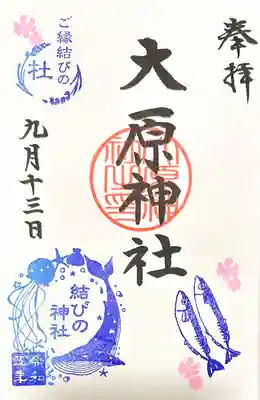 奉拝
大原神社
九月十三日
ご縁結びの
社
結びの
神社
令和